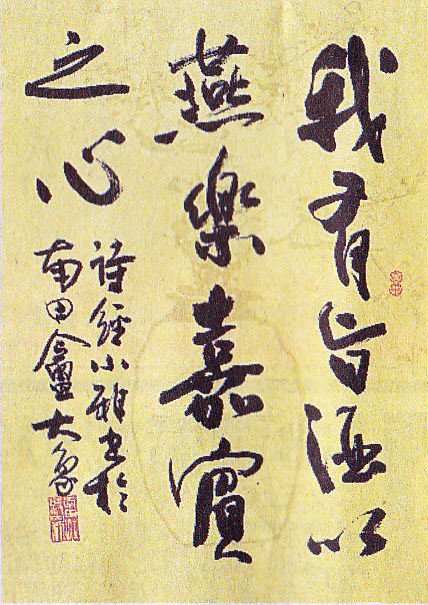 我有旨酒以
燕樂嘉賓
之心
詩經小雅書於
南田盦大象